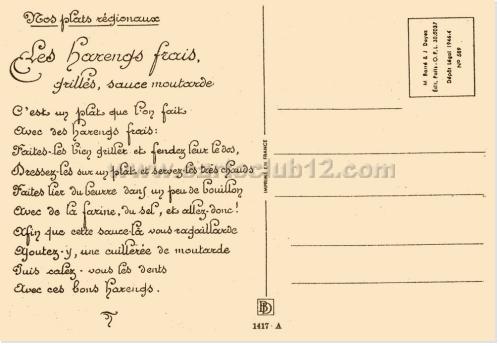 Nos plats régionaux
Les harengs frais,
grillés, sauce moutarde
C'est un plat que l'on fait
Avec des harengs frais:
Faites-les bien griller et fendez leur le dos,
Dressez-les sur un plat et servez-les très chauds
Faites lier du beurre dans un peu de bouillon
Avec de la farine, du sel, et allez-donc!
Afin que cette sauce-là vous ragaillarde
Ajoutez-y, une cuillerée de moutarde
Puis calez-vous les dents
Avec ces bons harengs.
www.cartoclub12.com
IMPRIMÉ EN FRANCE
1417 - A
M. Barré & J. Dayez
Édit. Paris - O.P.L. 30.0037
Dépôt Légal 1946-4
No 589